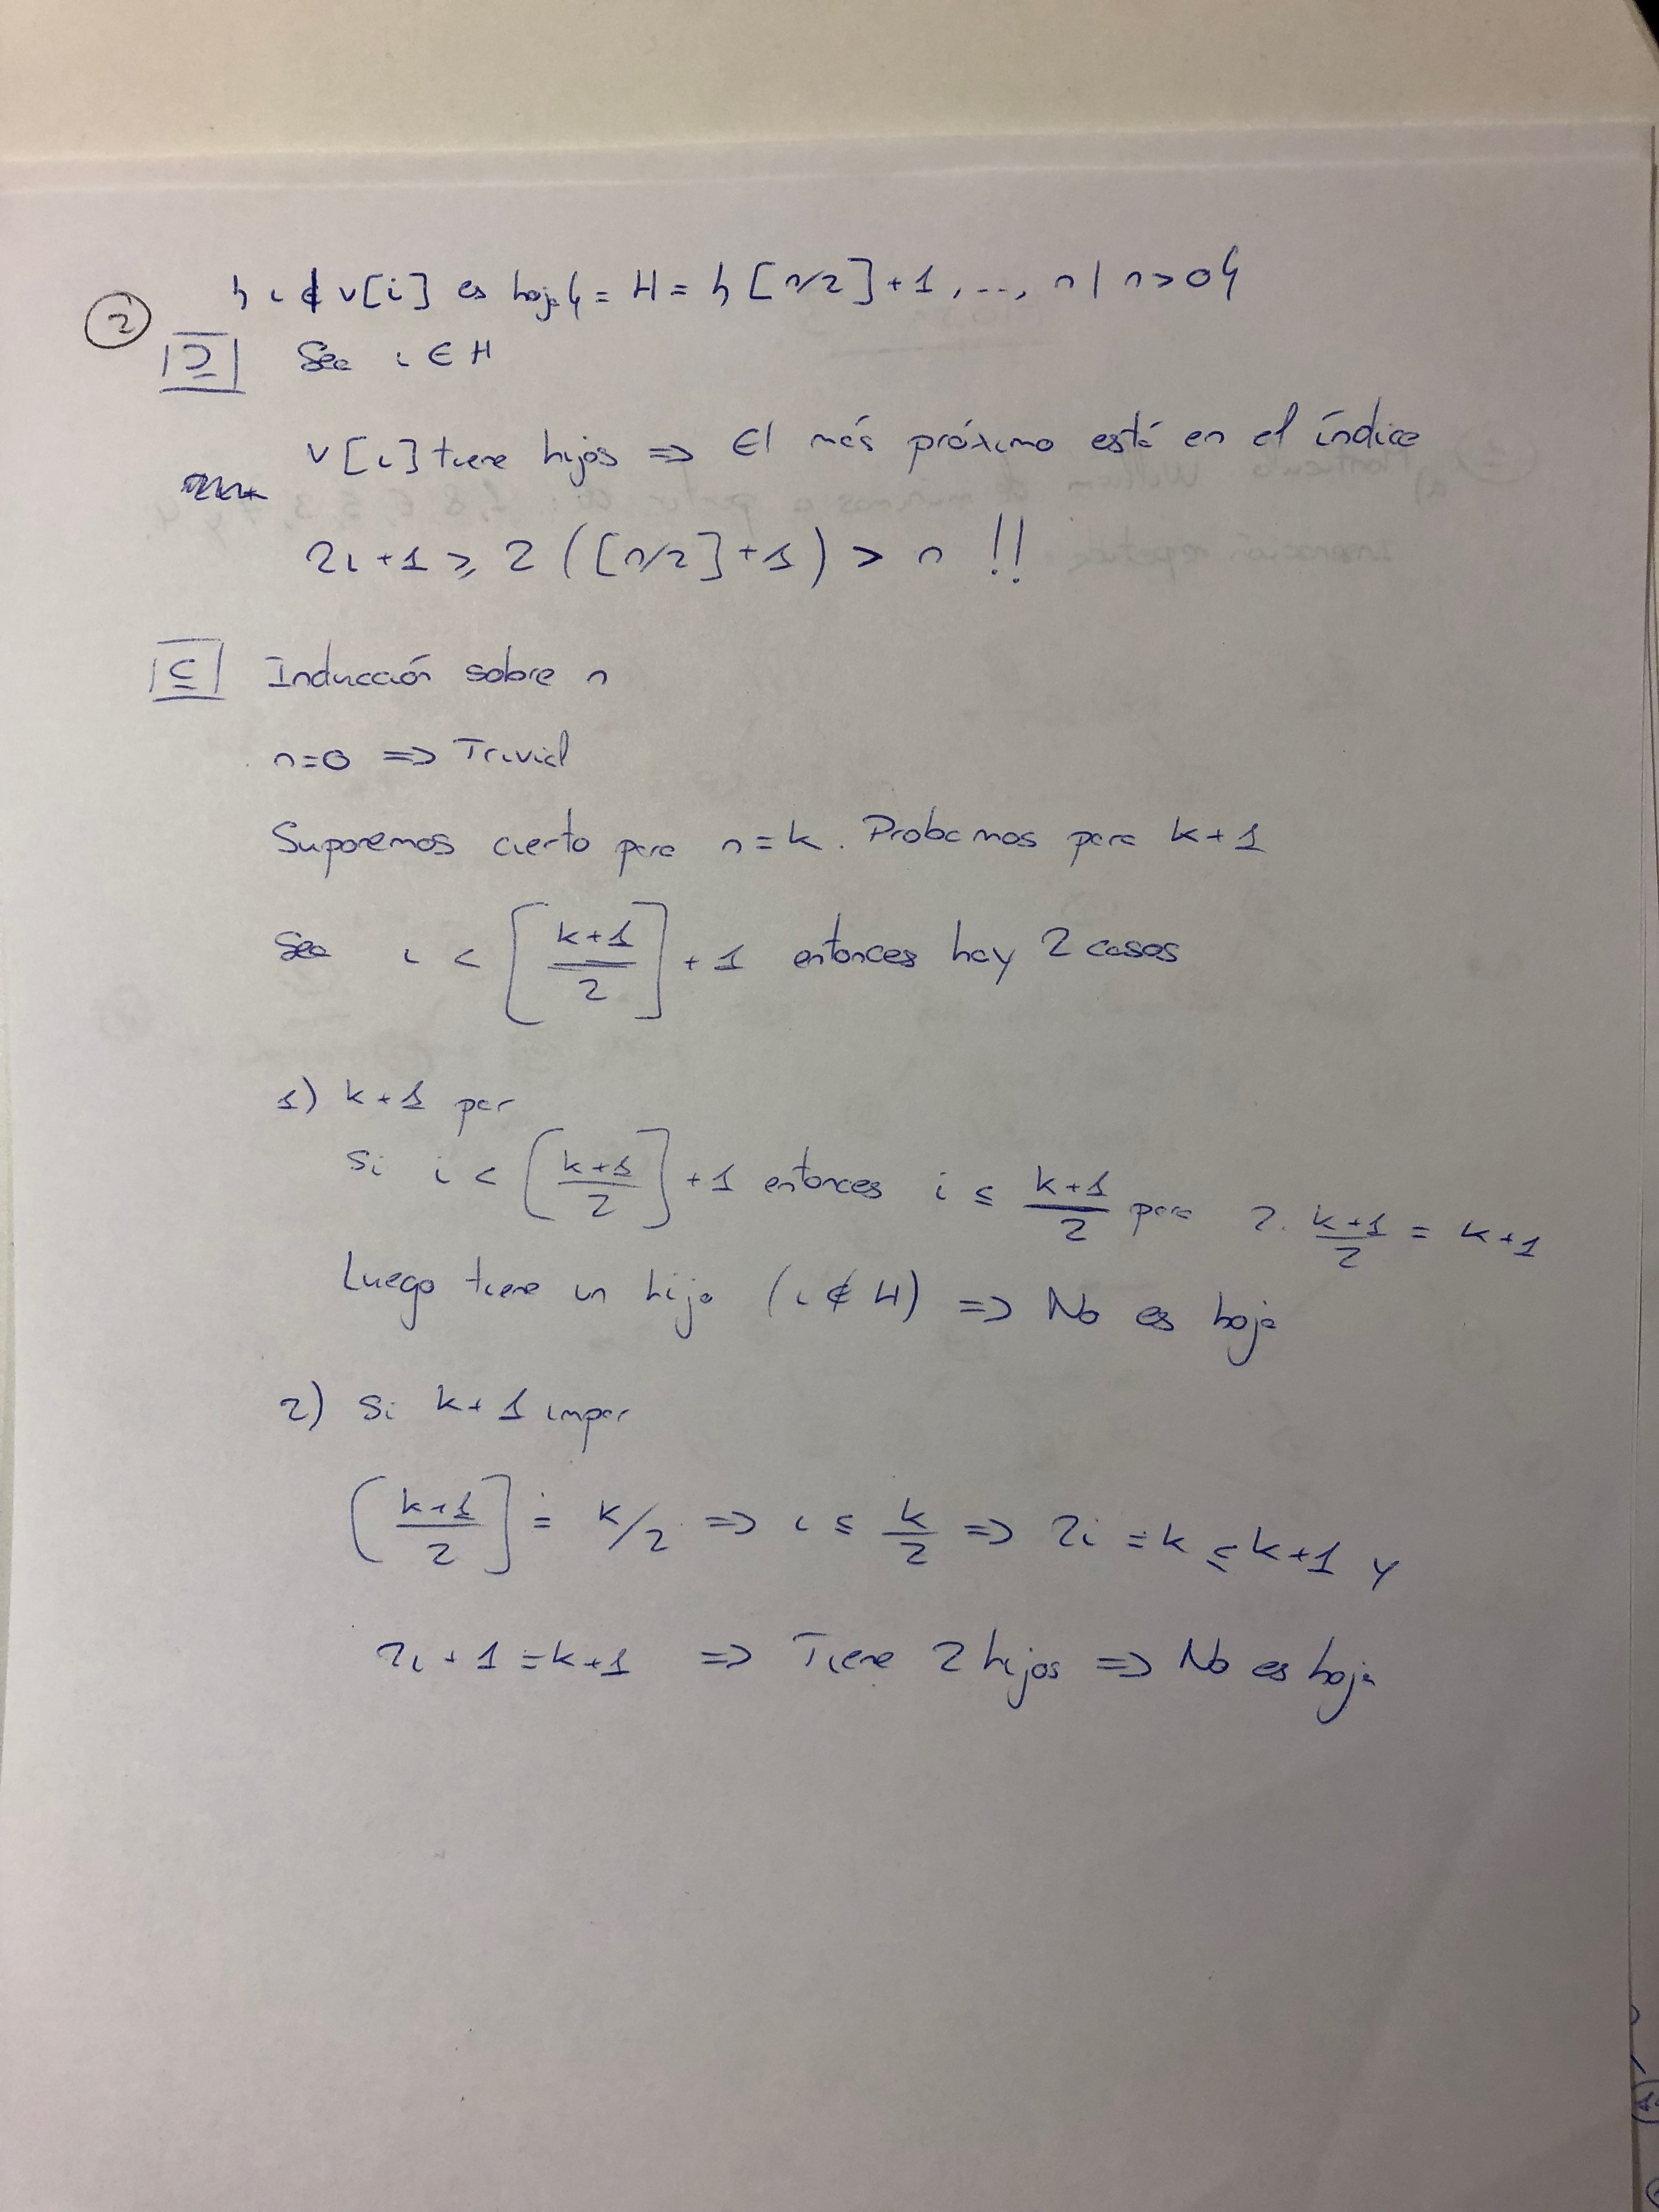 ②
{ i ∤ v[i] es hoja} = H = { [n/2]+1, ..., n | n>0}
|⊇| Sea i ∈ H
v[i] tiene hijos ⇒ El más próximo está en el índice
2i+1 ≥ 2([n/2]+1) > n !!
|⊆| Inducción sobre n
n=0 ⇒ Trivial
Suponemos cierto para n=k. Probamos para k+1
Sea i < [(k+1)/2] + 1 entonces hay 2 casos
1) k+1 par
Si i < [(k+1)/2] + 1 entonces i ≤ (k+1)/2 para 2·(k+1)/2 = k+1
Luego tiene un hijo (i ∉ H) ⇒ No es hoja
2) Si k+1 impar
[(k+1)/2] = k/2 ⇒ i ≤ k/2 ⇒ 2i = k ≤ k+1 y
2i+1 = k+1 ⇒ Tiene 2 hijos ⇒ No es hoja